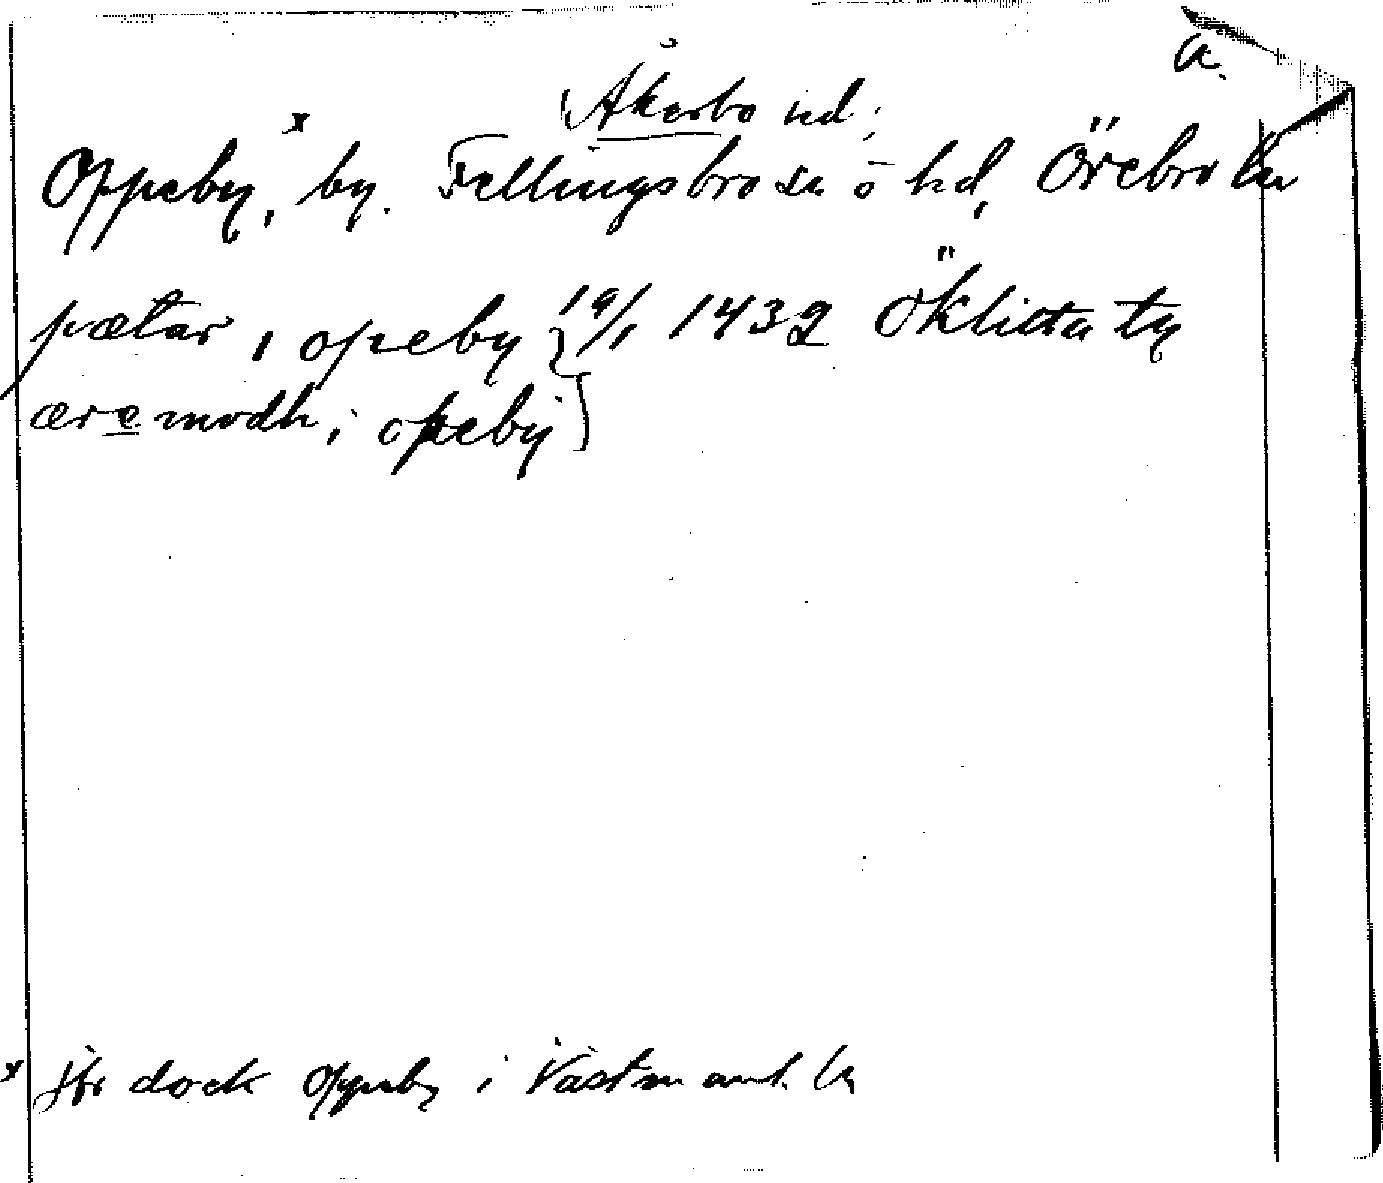 a.
Åkerbo hd;
Oppeby,ˣ by. Fellingsbro sn ō hd, Örebro län
pætar i opeby 19/1 1432 ty
æremodh i opeby
x jfr dock Oppeby i Västmanl. län